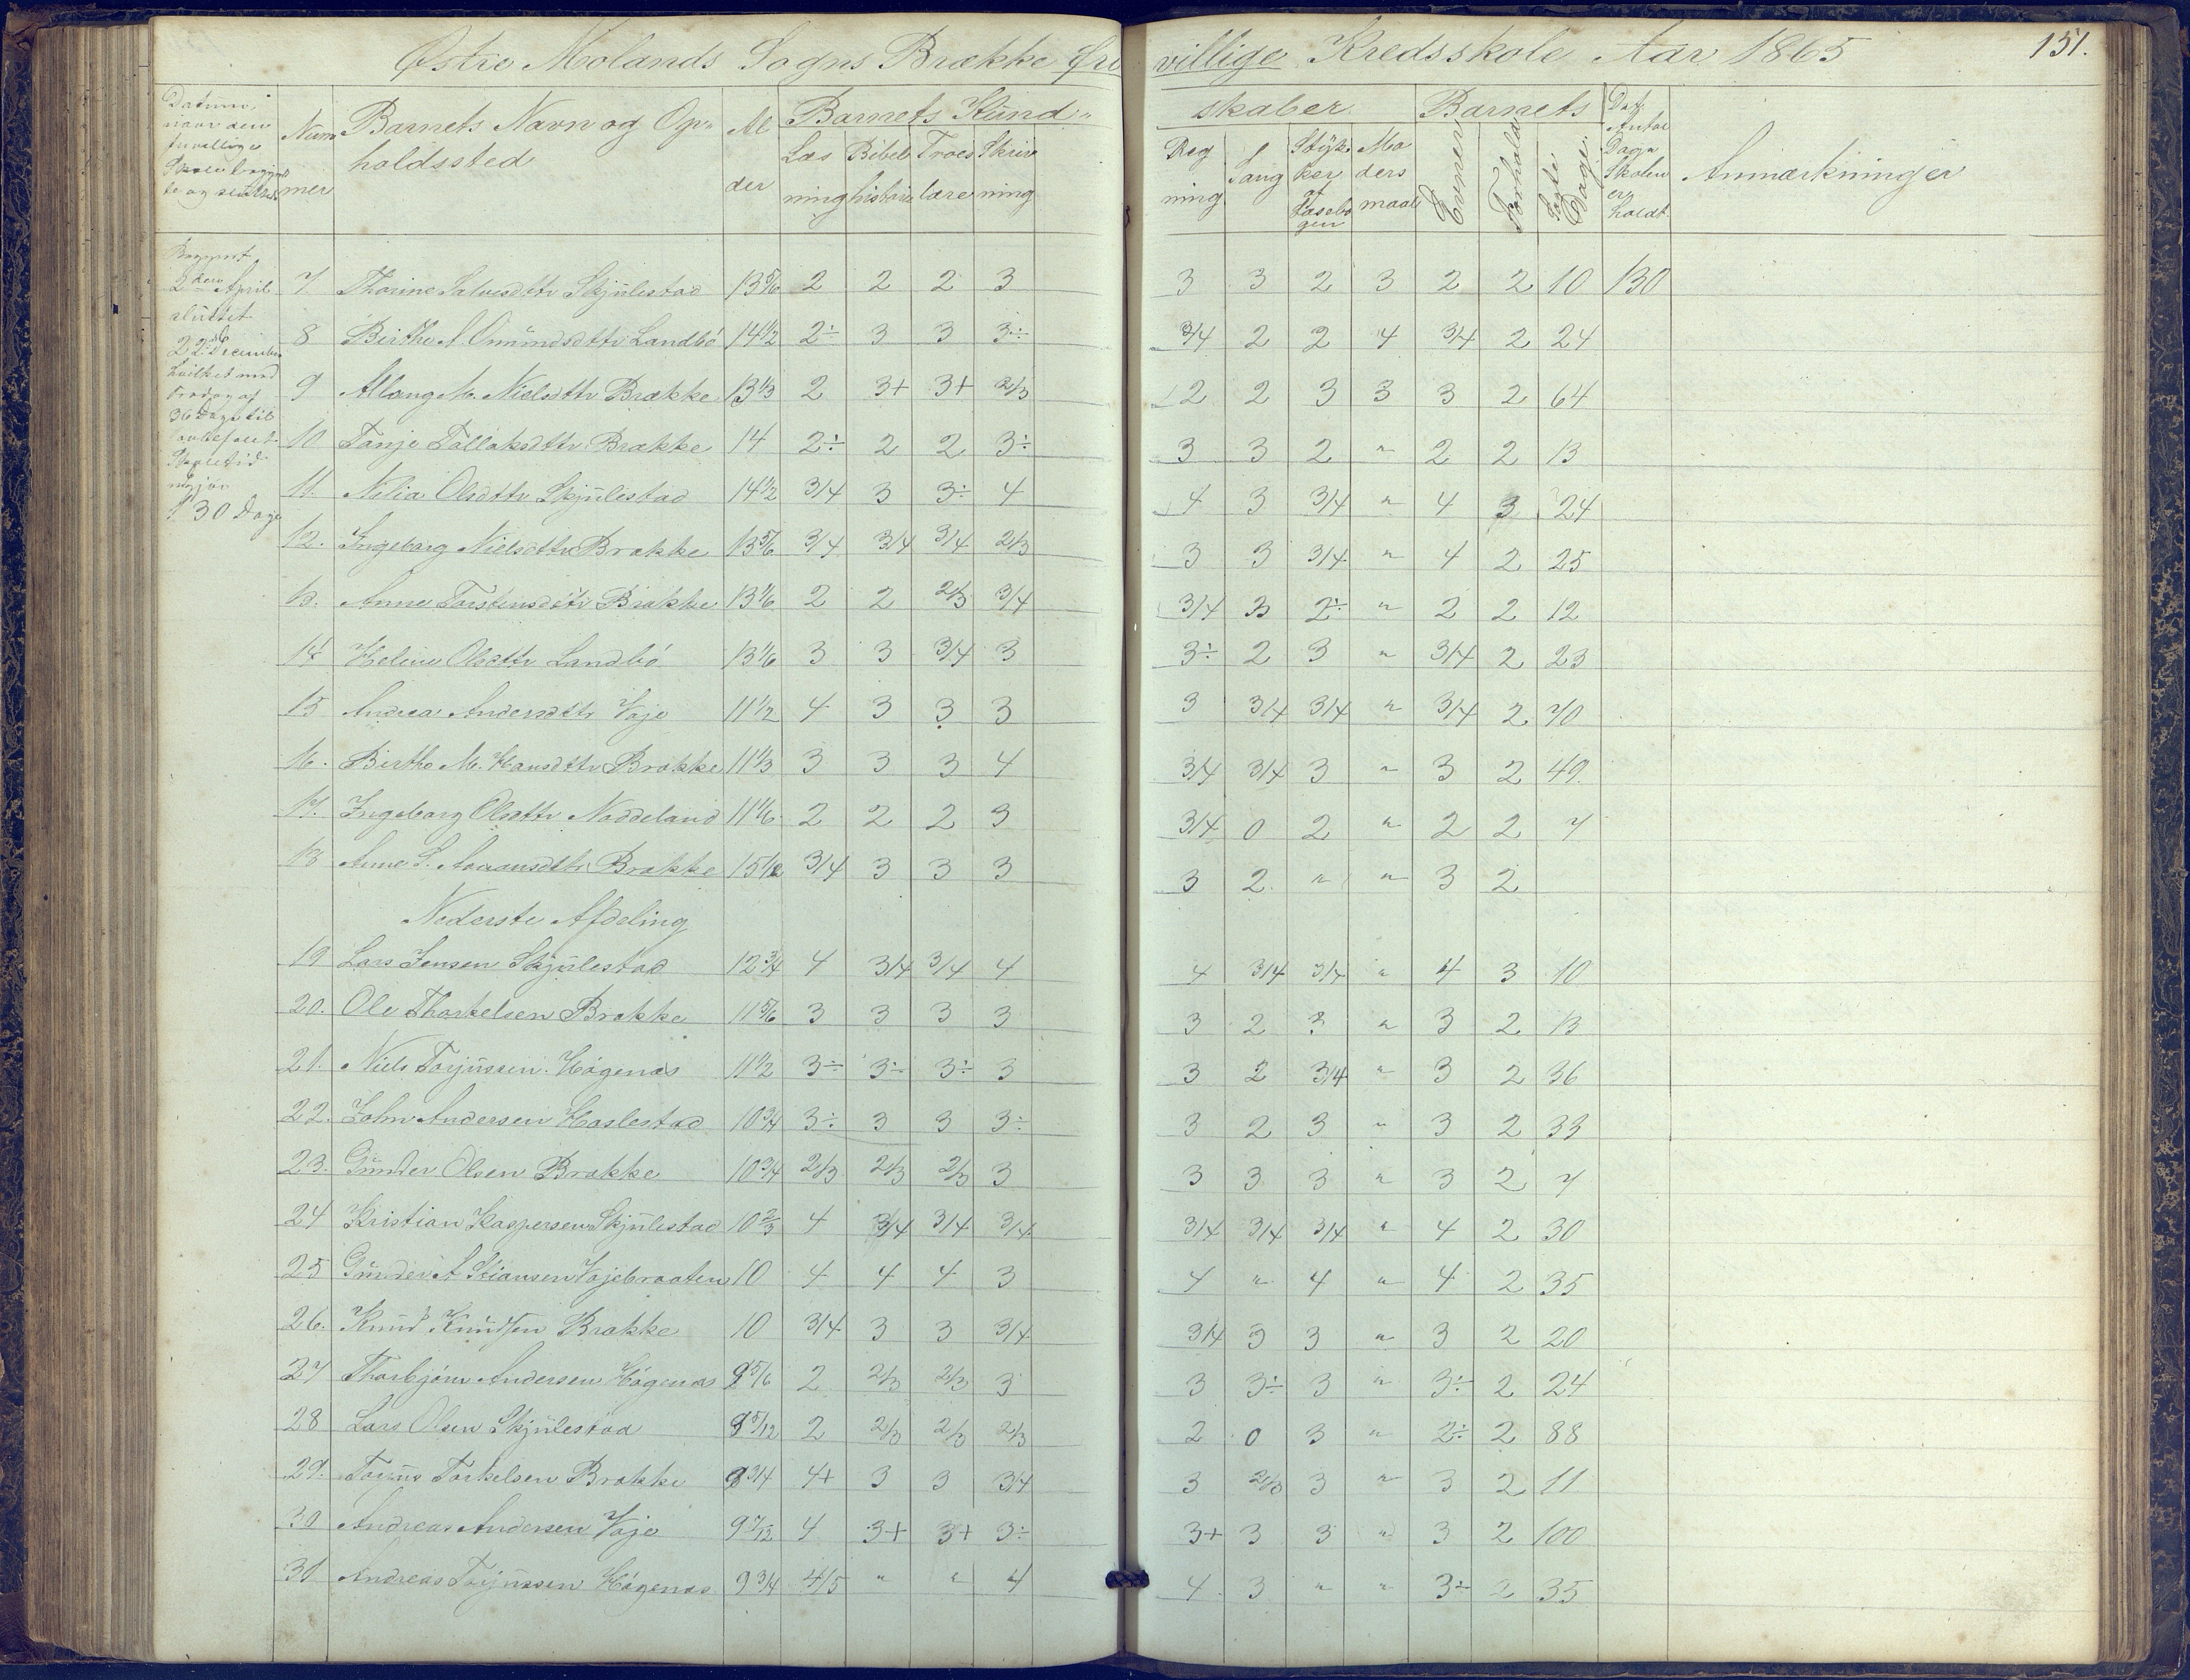 Østre Molands Sogns Brække Fri villige Kredsskole Aar 1865 151.
Datum, naar den frivillige Skole begyndte og sluttede
Num mer
Barnets Navn og Op= holdssted
Al der
Barnets Kund= skaber
Læs ning
Bibel historie
Troes lære
Skriv ning
Reg ning
Sang
Styk ker af Læsebo gen
Mo ders maal
Barnets
Evner
Forhold
Søgte Dage
Det Antal Dage Skolen er holdt
Anmærkninger
Begyndt
2den April
sluttet
22de December
hvilket med
Fradrag af
36 Dage til
Skoletid
udgjør
130 Dage
7 Thorine Salvesdttr Skjulestad 13 5/6 2 2 2 3 3 3 2 3 2 2 10 130
8 Birthe A. Omundsdttr Landbö 14 1/2 2÷ 3 3 3÷ 3/4 2 2 4 3/4 2 24
9 Allang M. Nielsdttr Brække 13 1/3 2 3+ 3+ 2/3 2 2 3 3 3 2 64
10 Tanje Tallaksdttr Brække 14 2÷ 2 2 3÷ 3 3 2 " 2 2 13
11. Nilia Olsdttr Skjulestad 14 1/2 3/4 3 3÷ 4 4 3 3/4 " 4 3 24
12. Ingeborg Nielsdttr Brække 13 5/6 3/4 3/4 3/4 2/3 3 3 3/4 " 4 2 25
13. Anne Torstensdttr Brække 13 1/6 2 2 2/3 3/4 3/4 3 2÷ " 2 2 12
14 Helene Olsdttr Landbö 13 1/6 3 3 3/4 3 3÷ 2 3 " 3/4 2 23
15 Andrea Andersdttr Voje 11 1/2 4 3 3 3 3 3/4 3/4 " 3/4 2 70
16. Birthe M. Hansdttr Brække 11 1/3 3 3 3 4 3/4 3/4 3 " 3 2 49.
17. Ingeborg Olsdttr Noddeland 11 1/6 2 2 2 3 3/4 0 2 " 2 2 7
18 Anne S. Aanonsdttr Brække 3/4 3 3 3 3 2 " " 3 2
Nederste Afdeling
19 Lars Jensen Skjulestad 12 3/4 4 3/4 3/4 4 4 3/4 3/4 " 4 3 10
20. Ole Thorkelsen Brække 11 5/6 3 3 3 3 3 2 3 " 3 2 13
21. Niels Torjussen Högenæs 11 1/2 3÷ 3÷ 3÷ 3 3 2 3/4 " 3 2 36
22. John Andersen Haslestad 10 3/4 3÷ 3 3 3÷ 3 2 3 " 3 2 33
23. Gunder Olsen Brække 10 3/4 2/3 2/3 2/3 3 3 3 3 " 3 2 7
24 Kristian Kaspersen Skjulestad 10 2/3 4 3/4 3/4 3/4 3/4 3/4 3/4 " 4 2 30
25 Gunder A Stiansen Vojebraaten 10 4 4 4 3 4 " 4 " 4 2 35
26. Knud Knudsen Brække 10 3/4 3 3 3/4 3/4 3 3 " 3 2 20
27 Thorbjörn Andersen Högenæs 9 5/6 2 2/3 2/3 3 3 3÷ 3 " 3÷ 2 24
28 Lars Olsen Skjulestad 9 5/12 2 2/3 2/3 2/3 2 0 3 " 2÷ 2 88
29. Torjus Torkelsen Brække 9 3/4 4+ 3 3 3/4 3 2/3 3 " 3 2 11
30 Andreas Andersen Voje 9 7/12 4 3+ 3+ 3÷ 3+ 3 3 " 3 2 100
31 Andreas Torjussen Högenæs 9 3/4 4/5 " " 4 4 3 " " 3÷ 2 35